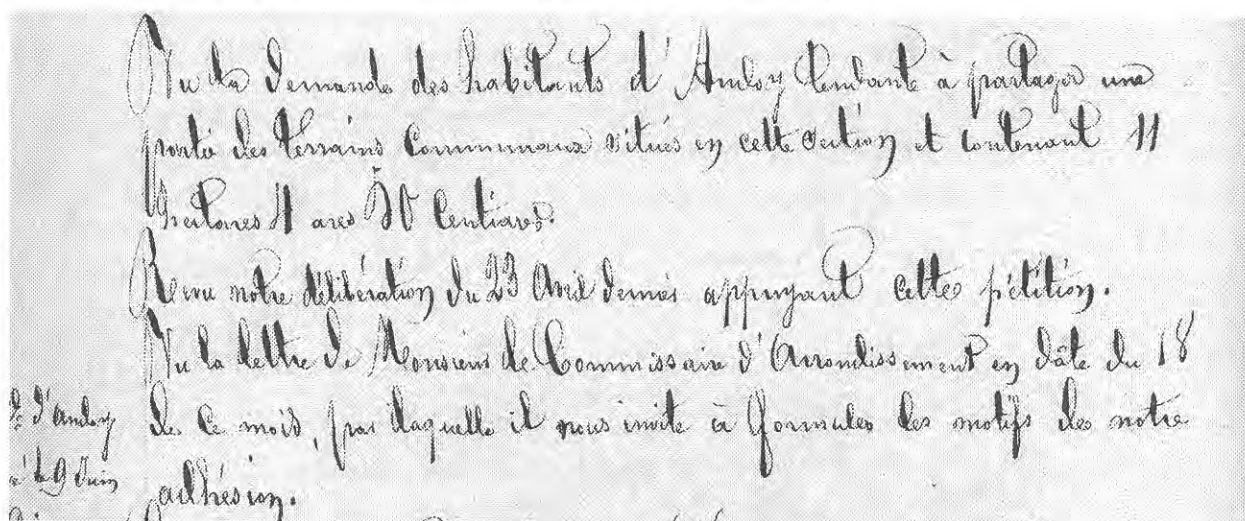 Vu la demande des habitants d'Andoy tendante à partager une
partie des terrains communaux situés en cette section et contenant 11
hectares 4 ares 50 Centiares.
Revu notre délibération du 23 Avril dernier appuyant cette pétition.
Vu la lettre de Monsieur le Commissaire d'Arrondissement en dâte du 18
de ce mois, par laquelle il nous invite à formuler les motifs de notre
d'andoy
adhésion.
9 Juin